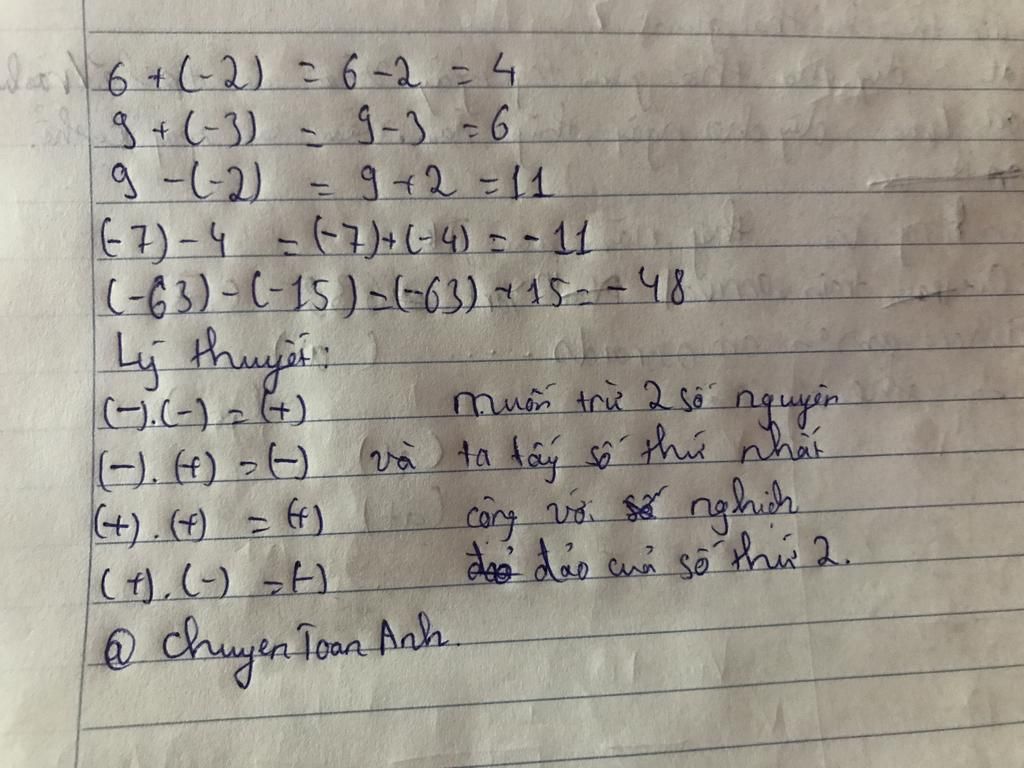 6 + (-2) = 6 - 2 = 4
9 + (-3) = 9 - 3 = 6
9 - (-2) = 9 + 2 = 11
(-7) - 4 = (-7) + (-4) = - 11
(-63) - (-15) = (-63) + 15 = - 48
Lý thuyết:
(-).(-) = (+) muốn trừ 2 số nguyên
(-).(+) = (-) và ta lấy số thứ nhất
(+).(+) = (+) cộng với nghịch
(+).(-) = (-) đảo của số thứ 2.
@ ChuyenToanAnh.